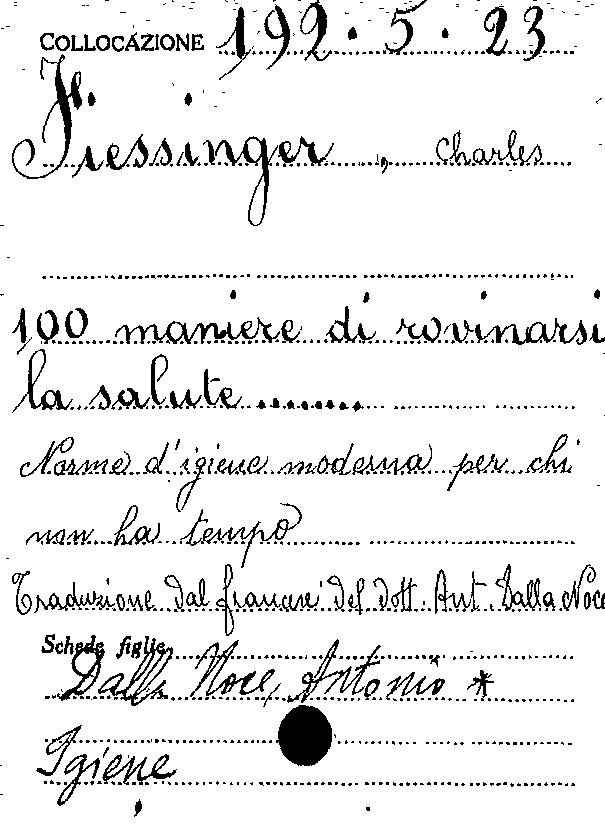 COLLOCAZIONE 192.5.23
Fiessinger, Charles
100 maniere di rovinarsi
la salute ........
Norme d'igiene moderna per chi
non ha tempo
Traduzione dal francese del dott. Ant. Dalla Noce
Schede figlie
Dalla Noce, Antonio *
Igiene